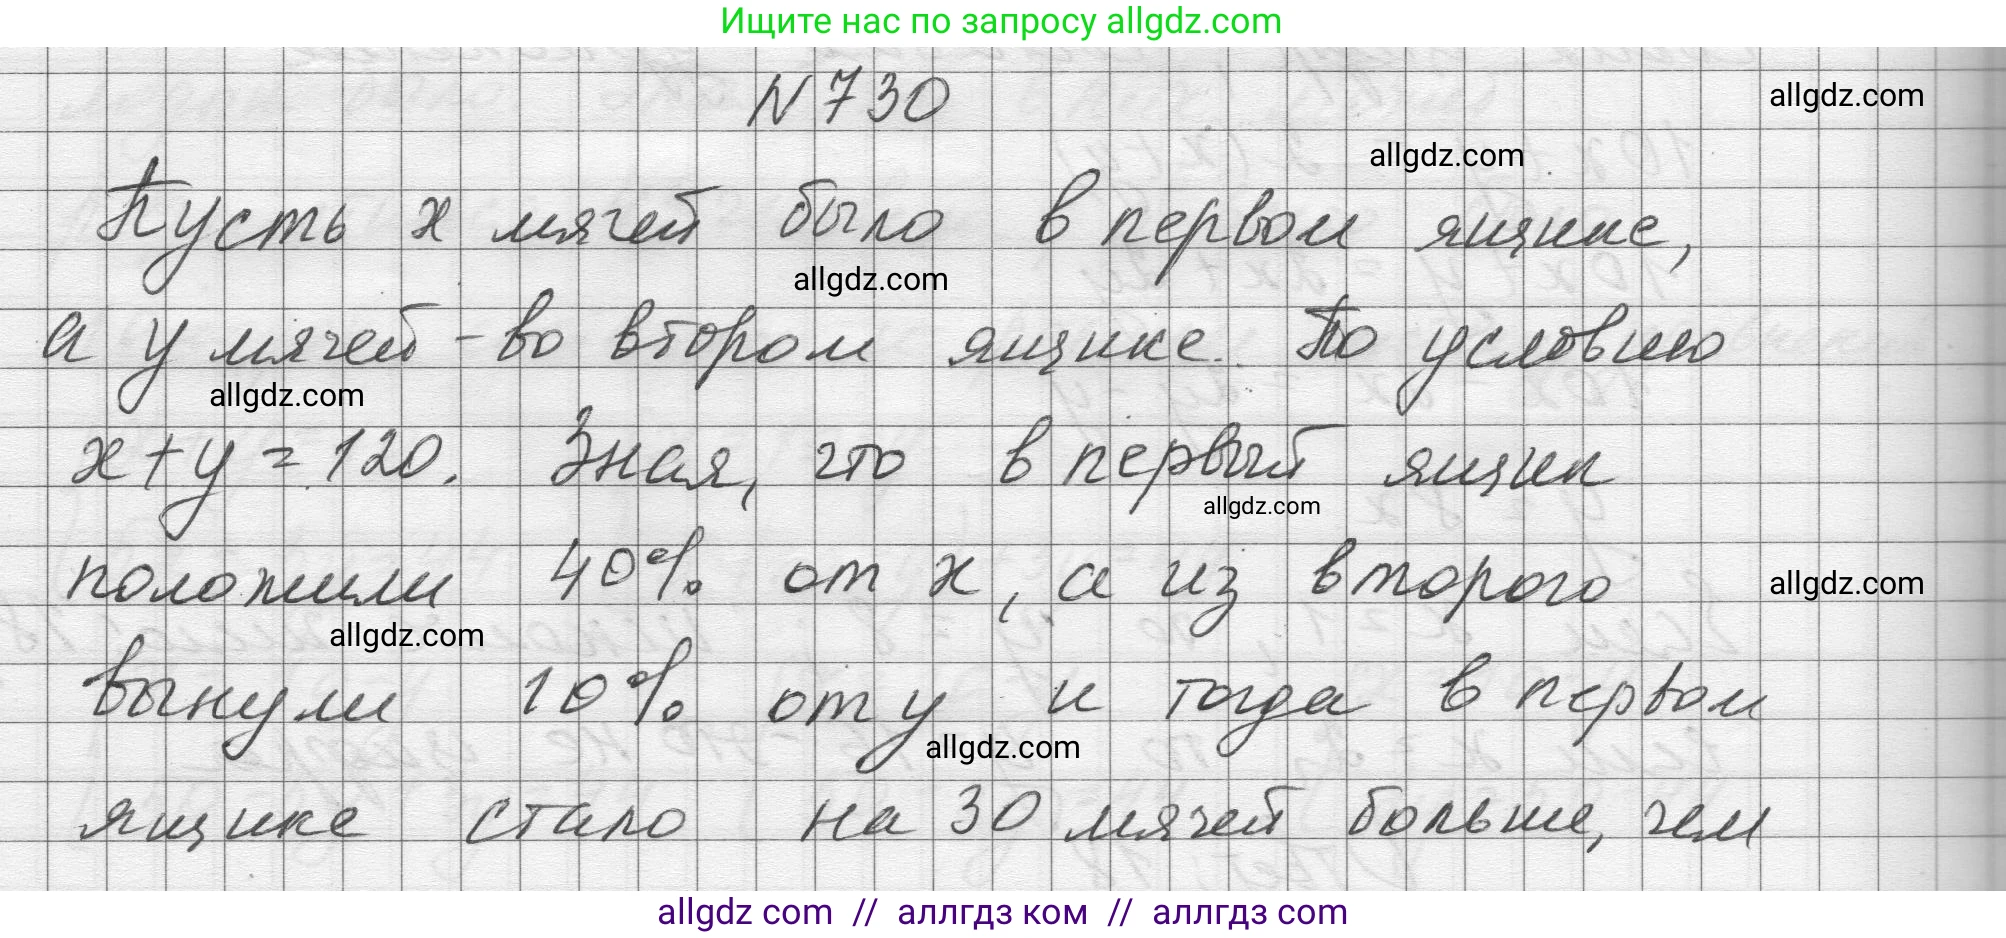 Ищите нас по запросу allgdz.com
N 730
allgdz.com
allgdz.com
Пусть x мячей было в первом ящике,
allgdz.com
а y мячей - во втором ящике. По условию
allgdz.com
x + y = 120. Зная, что в первый ящик
allgdz.com
положили 40% от x, а из второго
allgdz.com
allgdz.com
вынули 10% от y и тогда в первом
allgdz.com
ящике стало на 30 мячей больше, чем
allgdz com // аллгдз ком // аллгдз com